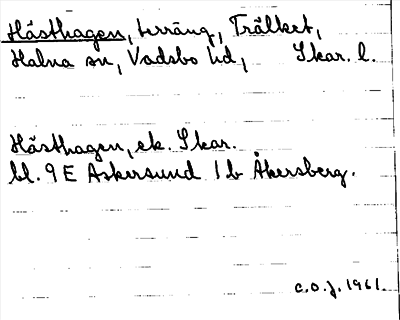 Hästhagen, terräng, Trälket,
Halna sn, Vadsbo hd, Skar. l.
Hästhagen, ek. Skar.
bl. 9 E Askersund 1 b Åkersberg.
C.O.J. 1961.